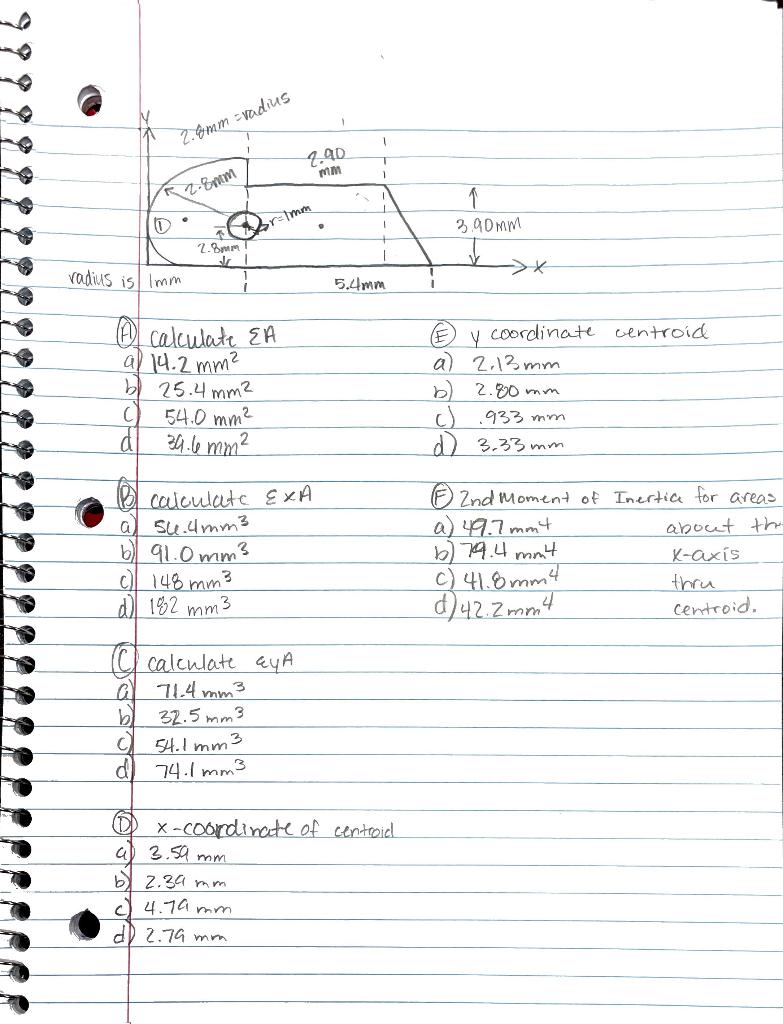 Y
2.8mm = radius
2.90
mm
2.8mm
r=1mm
①
2.8mm
3.90mm
X
radius is 1mm
5.4mm
Ⓐ calculate ΣA
a) 14.2 mm²
b) 25.4 mm²
c) 54.0 mm²
d 39.6 mm²
Ⓑ calculate ΣxA
a) 56.4 mm³
b) 91.0 mm³
c) 148 mm³
d) 182 mm³
Ⓒ calculate ΣyA
a) 71.4 mm³
b) 32.5 mm³
c) 54.1 mm³
d) 74.1 mm³
Ⓓ x-coordinate of centroid
a) 3.59 mm
b) 2.39 mm
c) 4.79 mm
d) 2.79 mm
Ⓔ y coordinate centroid
a) 2.13mm
b) 2.80 mm
c) .933 mm
d) 3.33 mm
Ⓕ 2nd Moment of Inertia for areas
a) 49.7 mm⁴ about th
b) 79.4 mm⁴ x-axis
c) 41.8 mm⁴ thru
d) 42.2 mm⁴ centroid.